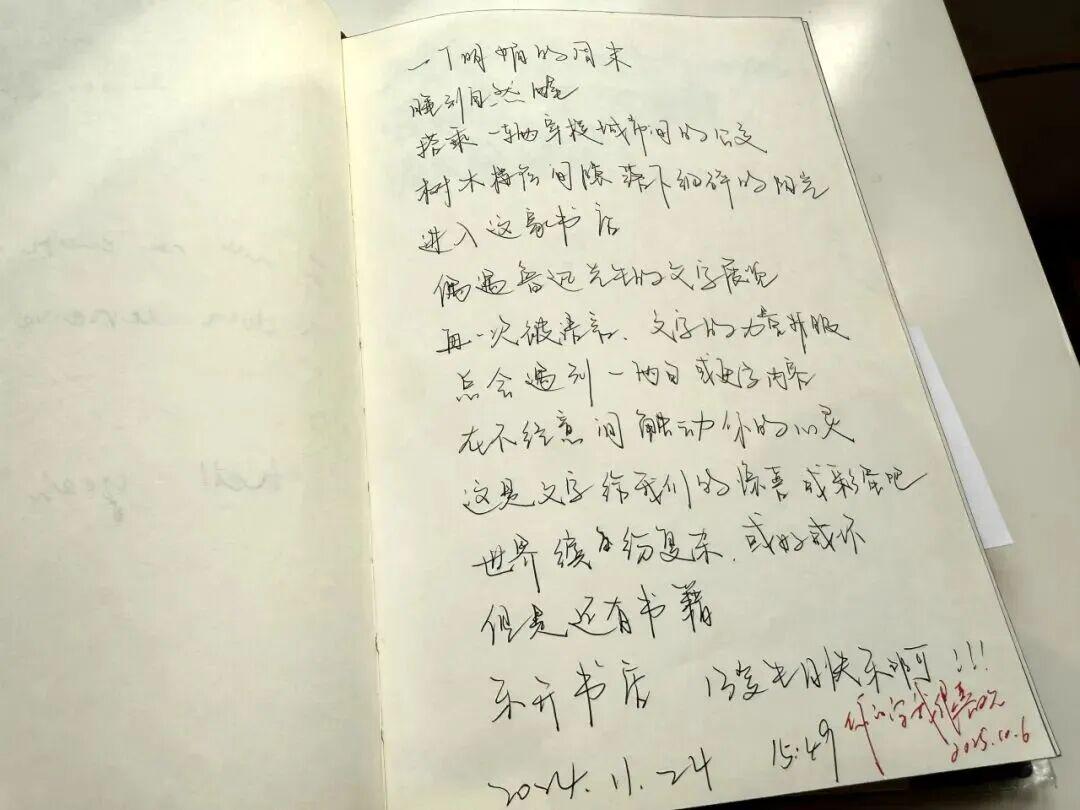 一个明媚的周末
睡到自然醒
搭乘一辆穿梭城市间的公交
树木梢台间隙落下细碎的阳光
进入这家书店
偶遇鲁迅先生的文字展览
再一次被语言、文字的力量折服
总会遇到一两句或文字内容
在不经意间触动你的心灵
这是文字给我们的惊喜或彩蛋吧
世界缤纷复杂，或好或坏
但是还有书籍
乐开书店 13岁生日快乐啊!!!
2024.11.24 15:49
你的字我很喜欢
2025.10.6